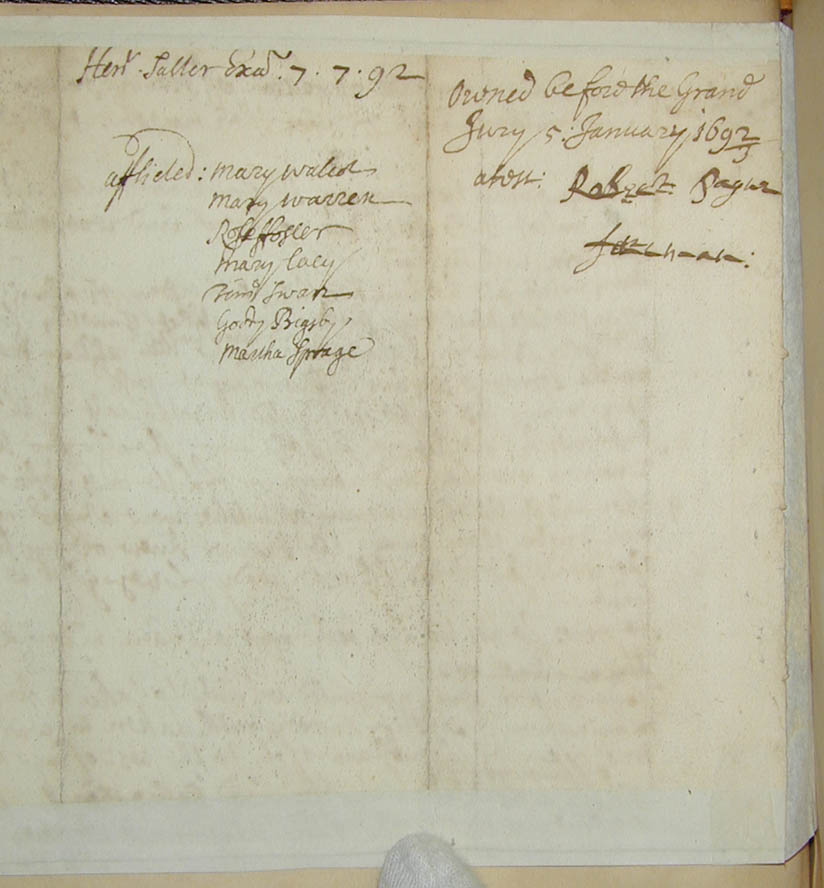 Henʳ Salter Exaᵐ. 7. 7. 92
afflicted: mary walcot
mary warren
Rose ffoster
mary Lacy
Timᵒ Swan
Goody Bigsby
Martha Sprage
Owned before the Grand
Jury 5: January 1692/3
atest: Robert Payne
foreman: